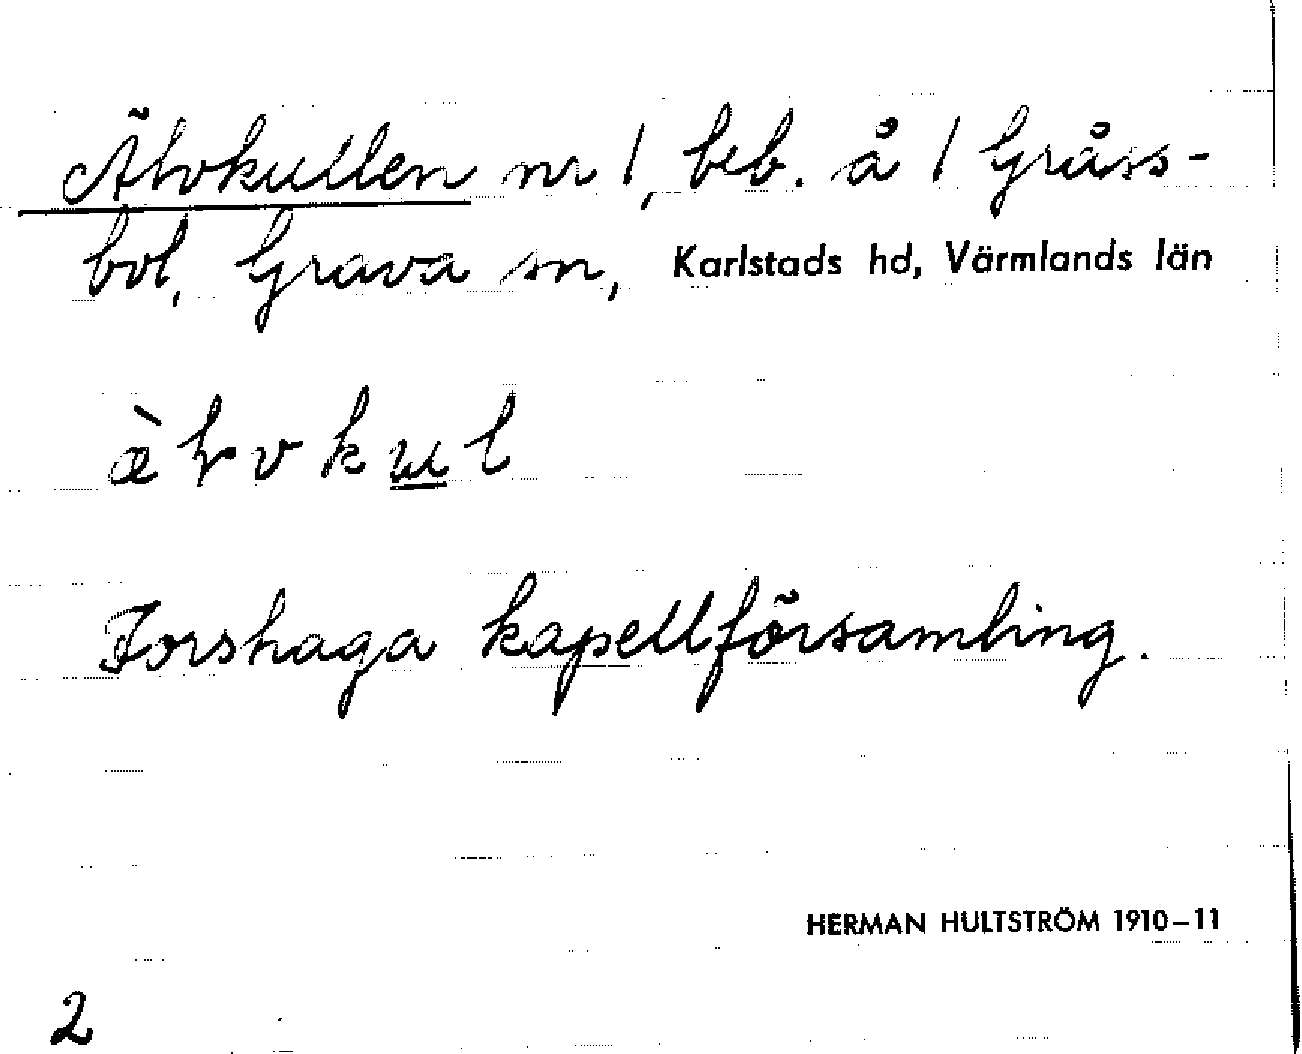 Älvkullen nr 1, beb. å 1 Gråss-
bol, Grava sn, Karlstads hd, Värmlands län
Forshaga kapellförsamling.
HERMAN HULTSTRÖM 1910-11
2